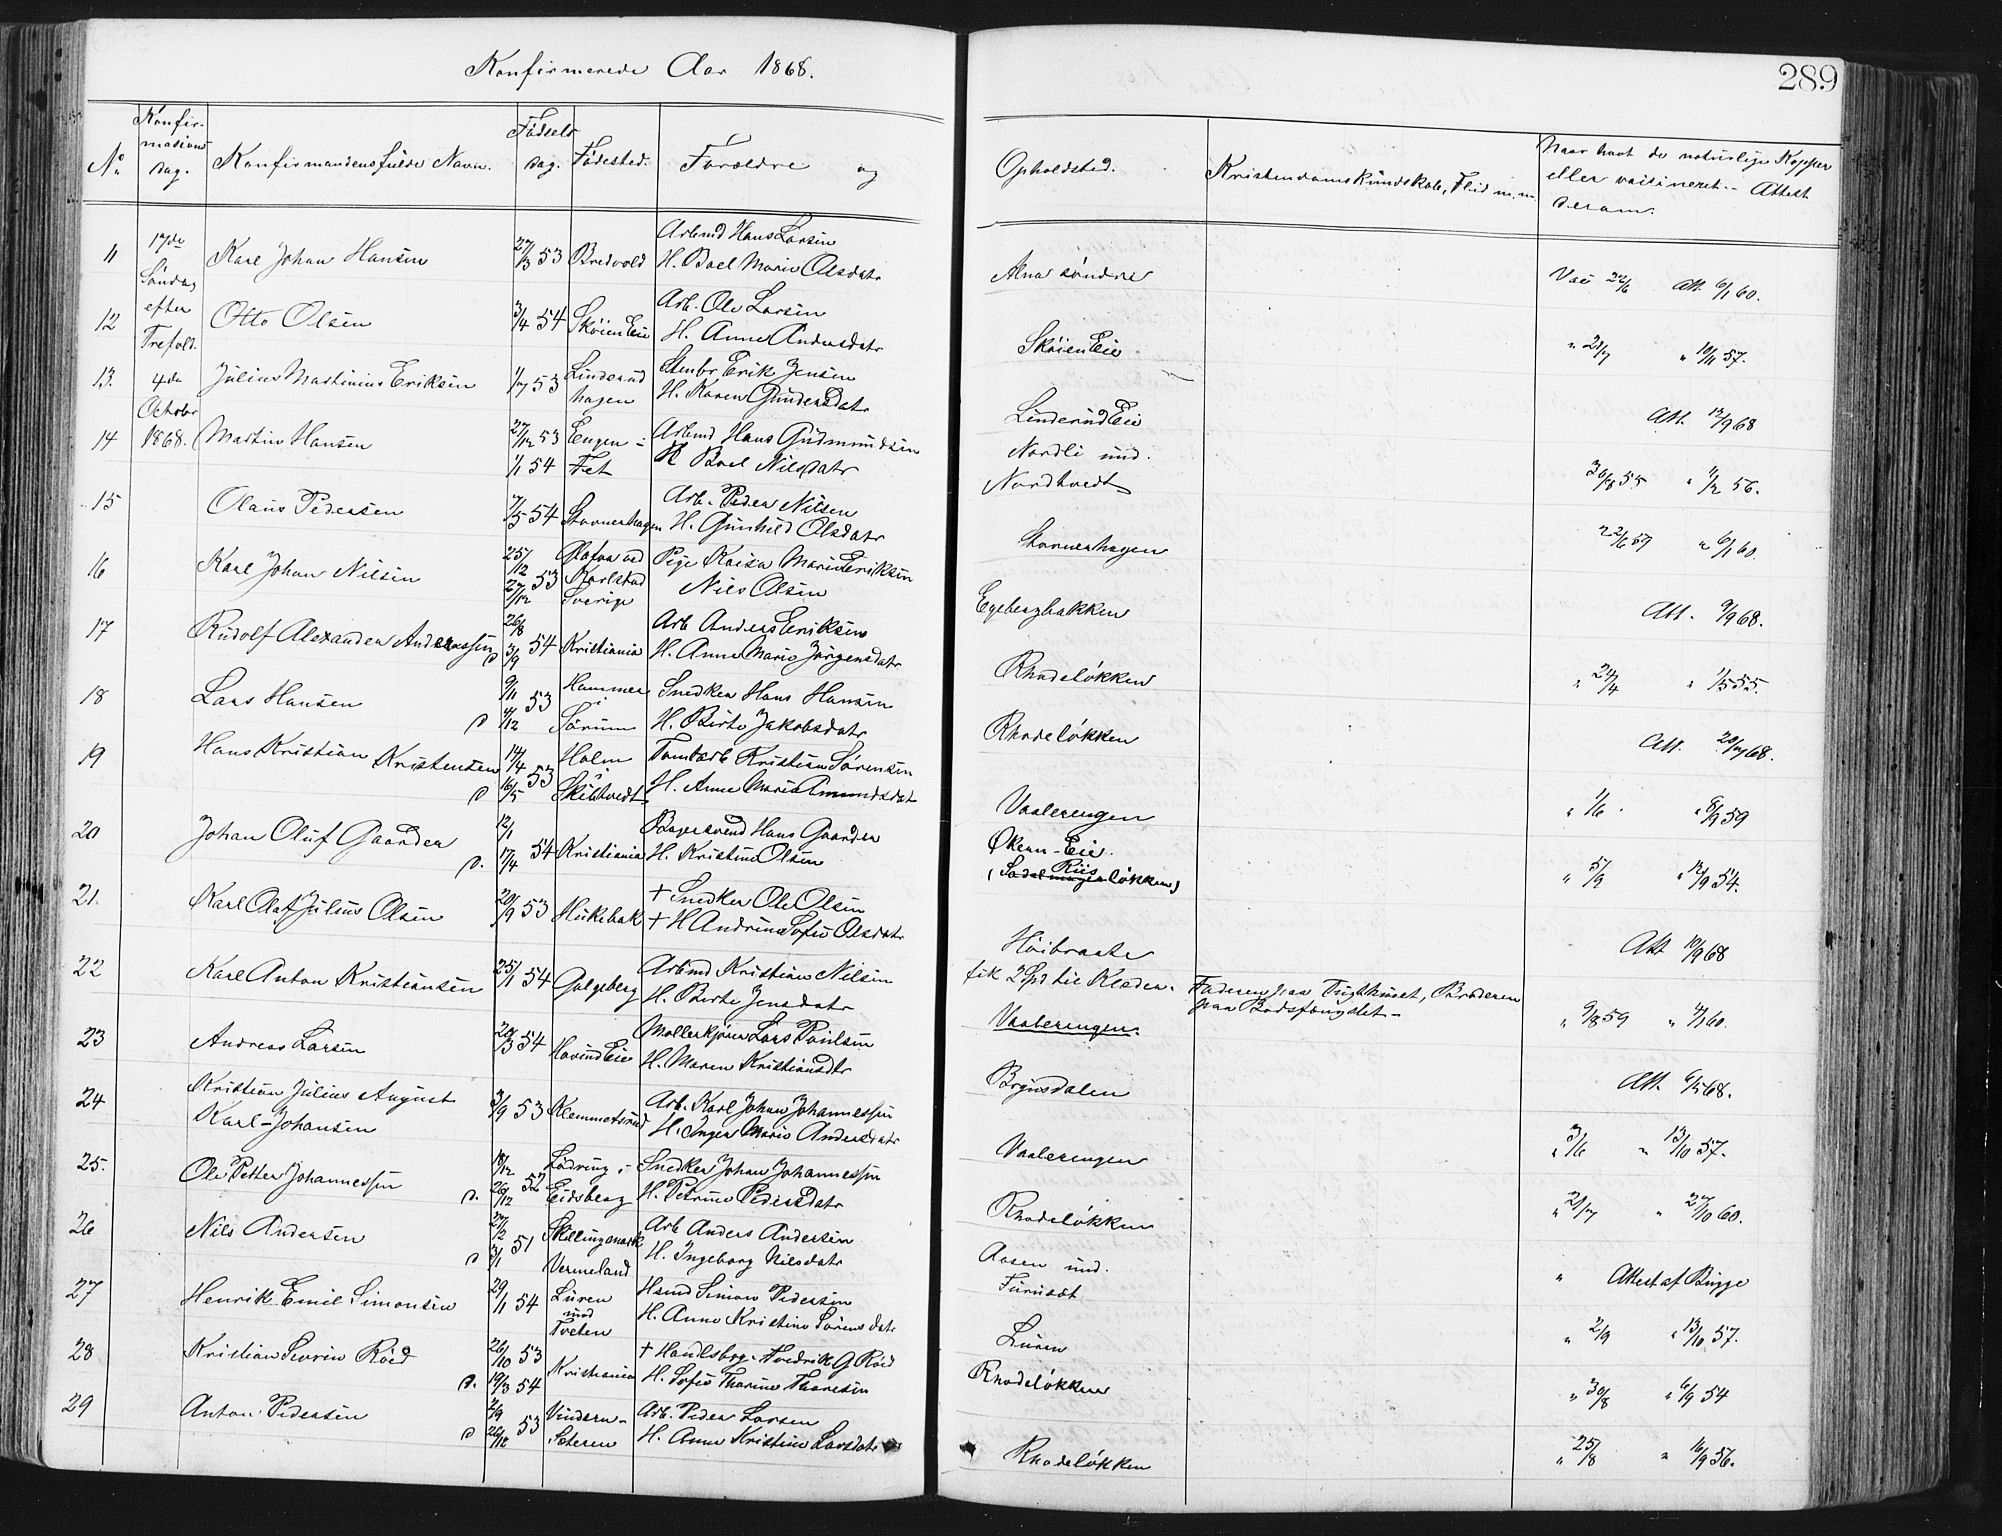 Konfirmerede Aar 1868.
289
No
Konfir-
masions
dag.
Konfirmandens fulde Navn.
Fødsels
dag.
Fødested.
Forældre og
Opholdsted.
Kristendomskundskab, Flid m.m.
Naar havt de naturlige Kopper
eller vaksineret. - Attest
derom.
17de
Søndag
efter
Trefold.
4de
October
1868.
11 Karl Johan Hansen 27/3 53 Bredvold
Arbmd Hans Larsen
H. Boel Marie Olsdatr
Alna søndre
Vac 22/6 Att. 6/1 60.
12 Otto Olsen 3/4 54 Skøien Eie
Arb. Ole Larsen
H. Anne Andersdatr
Skøien Eie
" 21/7 " 10/11 57.
13. Julius Martinius Eriksen 1/7 53 Linderud
hagen
Stenbr Erik Jensen
H. Karen Gundersdatr
Linderud Eie
Att. 12/9 68
14 Martin Hansen 27/12 53 Eengen i
1/1 54 Fet
Arbmd Hans Gudmundsen
H Boel Nilsdatr
Nordli und.
Nordtvedt
30/8 55 " 1/2 56.
15 Olaus Pedersen 7/5 54 Stovnerhagen
Arb. Peder Nilsen
H. Gunhild Olsdatr
Stovnerhagen
22/6 59 " 6/1 60.
16 Karl Johan Nilsen 25/12 53
27/12
Karlstad
Sverige
Pige Kaisa Marie Eriksen
Nils Olsen
Egebergbakken
Att. 9/9 68.
17 Rudolf Alexander Anderssen 26/8 54 Kristiania
d 3/9
Arb Anders Eriksen
H. Anne Marie Jørgensdatr
Rhodeløkken
" 24/4 " 1/5 55.
18 Lars Hansen 9/11 53 Hammer
d 4/12 i Sørum
Snedker Hans Hansen
H. Birte Jakobsdatr
Rhodeløkken
Att. 20/7 68.
19 Hans Kristian Kristensen 14/4 53 Holm
d 16/5 i Skibtvedt
Tomtearb Kristian Sørensen
H. Anne Marie Amundsdat
Vaalerengen
" 1/6 " 8/9 59
20 Johan Oluf Gaarder 12/1 54 Kristiania
d. 17/4
Bagersvend Hans Gaarder
H. Kristine Olsen
Økern-Eie.
Riis
(Sadelmagerløkken)
" 5/9 " 12/9 54.
21. Karl Olaf Julius Olsen 20/9 53 Mikebak
+ Snedker Ole Olsen
+ H Andrine Sofie Olsdatr
Høibraate
Att 10/9 68
22 Karl Anton Kristiansen 25/1 54 Galgeberg
Arbmd Kristian Nilsen
H. Berte Jensdatr
fik 2 Spd til Klæder.
Vaalerengen.
Faderen paa Tugthuset, Broderen
paa Bodsfængslet -
" 9/8 59 " 4/1 60.
23 Andreas Larsen 20/3 54 Hovind Eie
Møllerkjører Lars Poulsen
H. Maren Kristiansdtr
Brynsdalen
Att. 6/5 68.
24 Kristian Julius August
Karl-Johansen
3/9 53 Klemmetsrud
Arb. Karl Johan Johannessen
H. Inger Marie Andersdatr
Vaalerengen
" 3/6 " 13/10 57.
25. Ole Petter Johannessen 18/12 52
d. 26/12 Eidsberg
Snedker Johan Johannessen
H. Petrine Pedersdatr
Rhodeløkken
" 21/7 " 27/10 60.
26 Nils Andersen 27/2 51 Skillingmark
d 3/1 Vermeland
Arb Anders Andersen
H. Ingeborg Nilsdatr
Aasen und.
Furuset
" Attest af Bugge
27 Henrik Emil Simonsen 29/1 54 Luren
und
Tveten
Hsmd Simon Pedersen
H. Anne Kristine Sørensdatr
Luren
" 2/9 " 13/10 57.
28 Kristian Severin Røed 26/10 53 Kristiania
d. 19/3 54
+ Handlsbog. Fredrik G Røed
H. Sofie Tharine Thoresen
Rhodeløkken
" 30/8 " 6/9 54
29 Anton Pedersen 2/9 53 Vindern-
d 26/12 Seteren
Arb. Peder Larsen
H. Anne Kristine Larsdatr
Rhodeløkken
" 25/8 " 16/9 56.